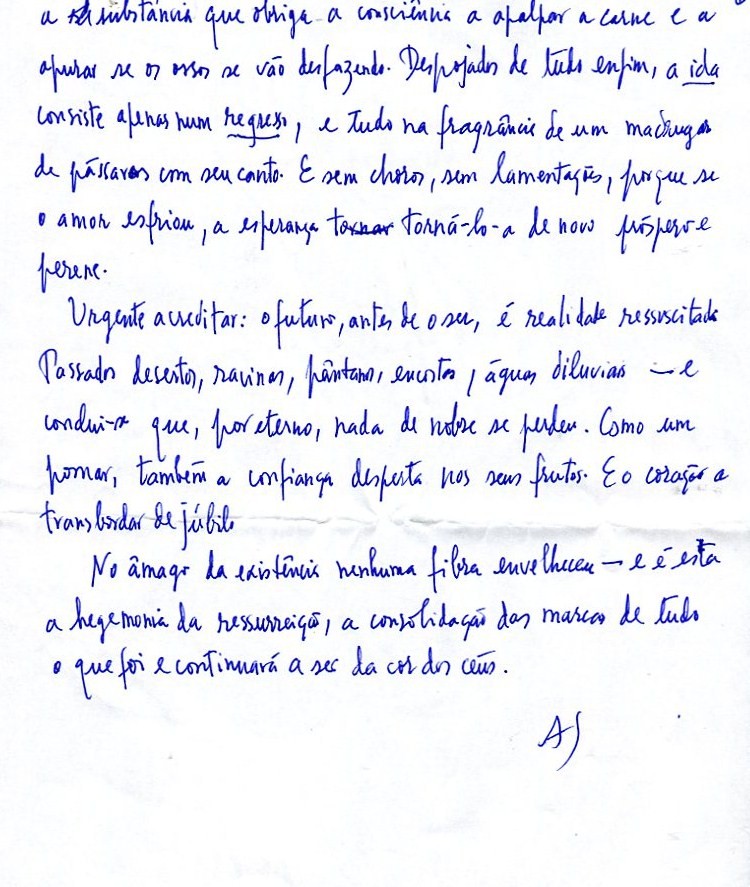 a substância que obriga a consciência a apalpar a carne e a
apurar se os ossos se vão desfazendo. Despojados de tudo enfim, a ida
consiste apenas num regresso, e tudo na fragrância de um madrugar
de pássaros com seu canto. E sem choros, sem lamentações, porque se
o amor esfriou, a esperança tornar torná-lo-a de novo próspero e
perene.
Urgente acreditar: o futuro, antes de o ser, é realidade ressuscitada
Passados desertos, ravinas, pântanos, encostas, águas diluviais — e
conclui-se que, por eterno, nada de nobre se perdeu. Como um
pomar, também a confiança desperta nos seus frutos. E o coração a
transbordar de júbilo
No âmago da existência nenhuma fibra envelheceu — e é esta
a hegemonia da ressurreição, a consolidação das marcas de tudo
o que foi e continuará a ser da cor dos céus.
AS